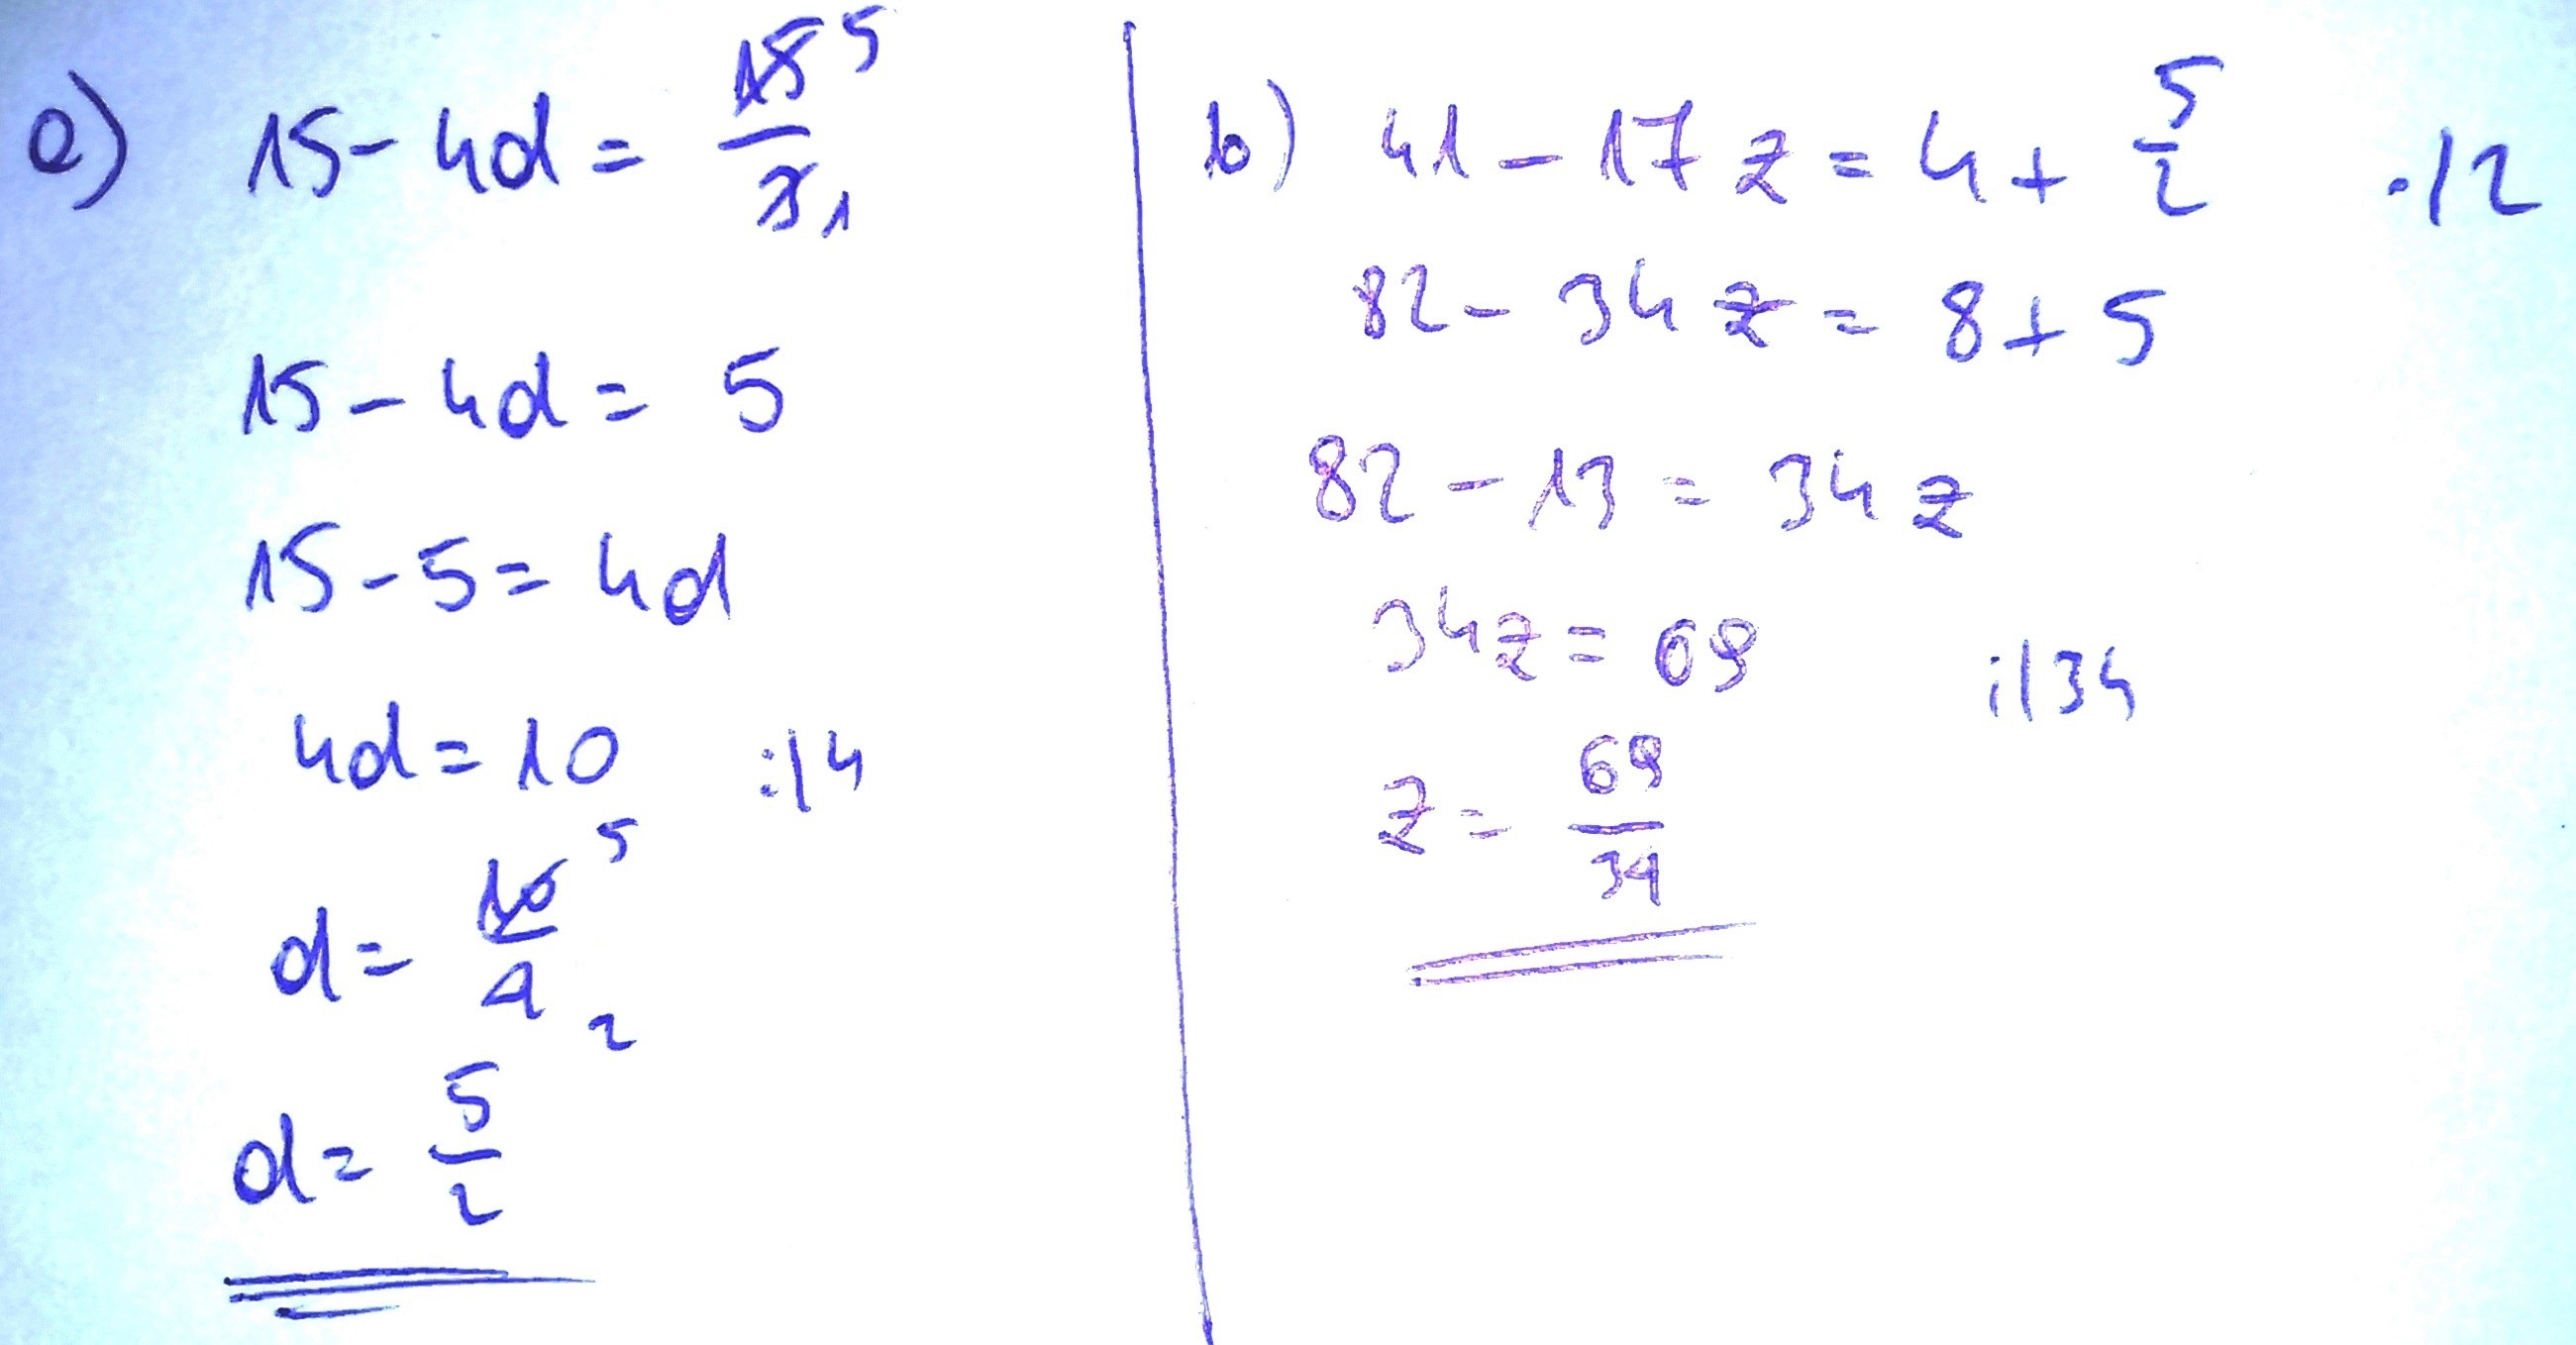 a) 15 - 4d = 15/3 5 1
15 - 4d = 5
15 - 5 = 4d
4d = 10 :/4
d = 10/4 5 2
d = 5/2
b) 41 - 17z = 4 + 5/2 ·/2
82 - 34z = 8 + 5
82 - 13 = 34z
34z = 69 :/34
z = 69/34